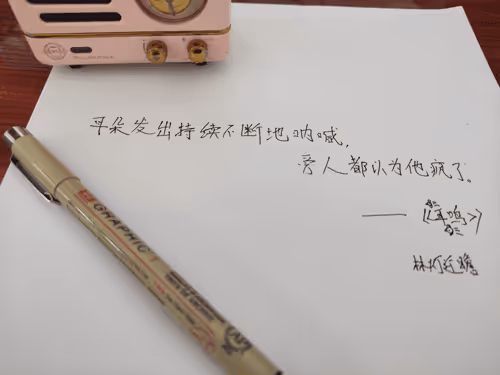 耳朵发出持续不断地呐喊,
旁人都认为他疯了。
——《耳鸣》
GRAPHIC 1